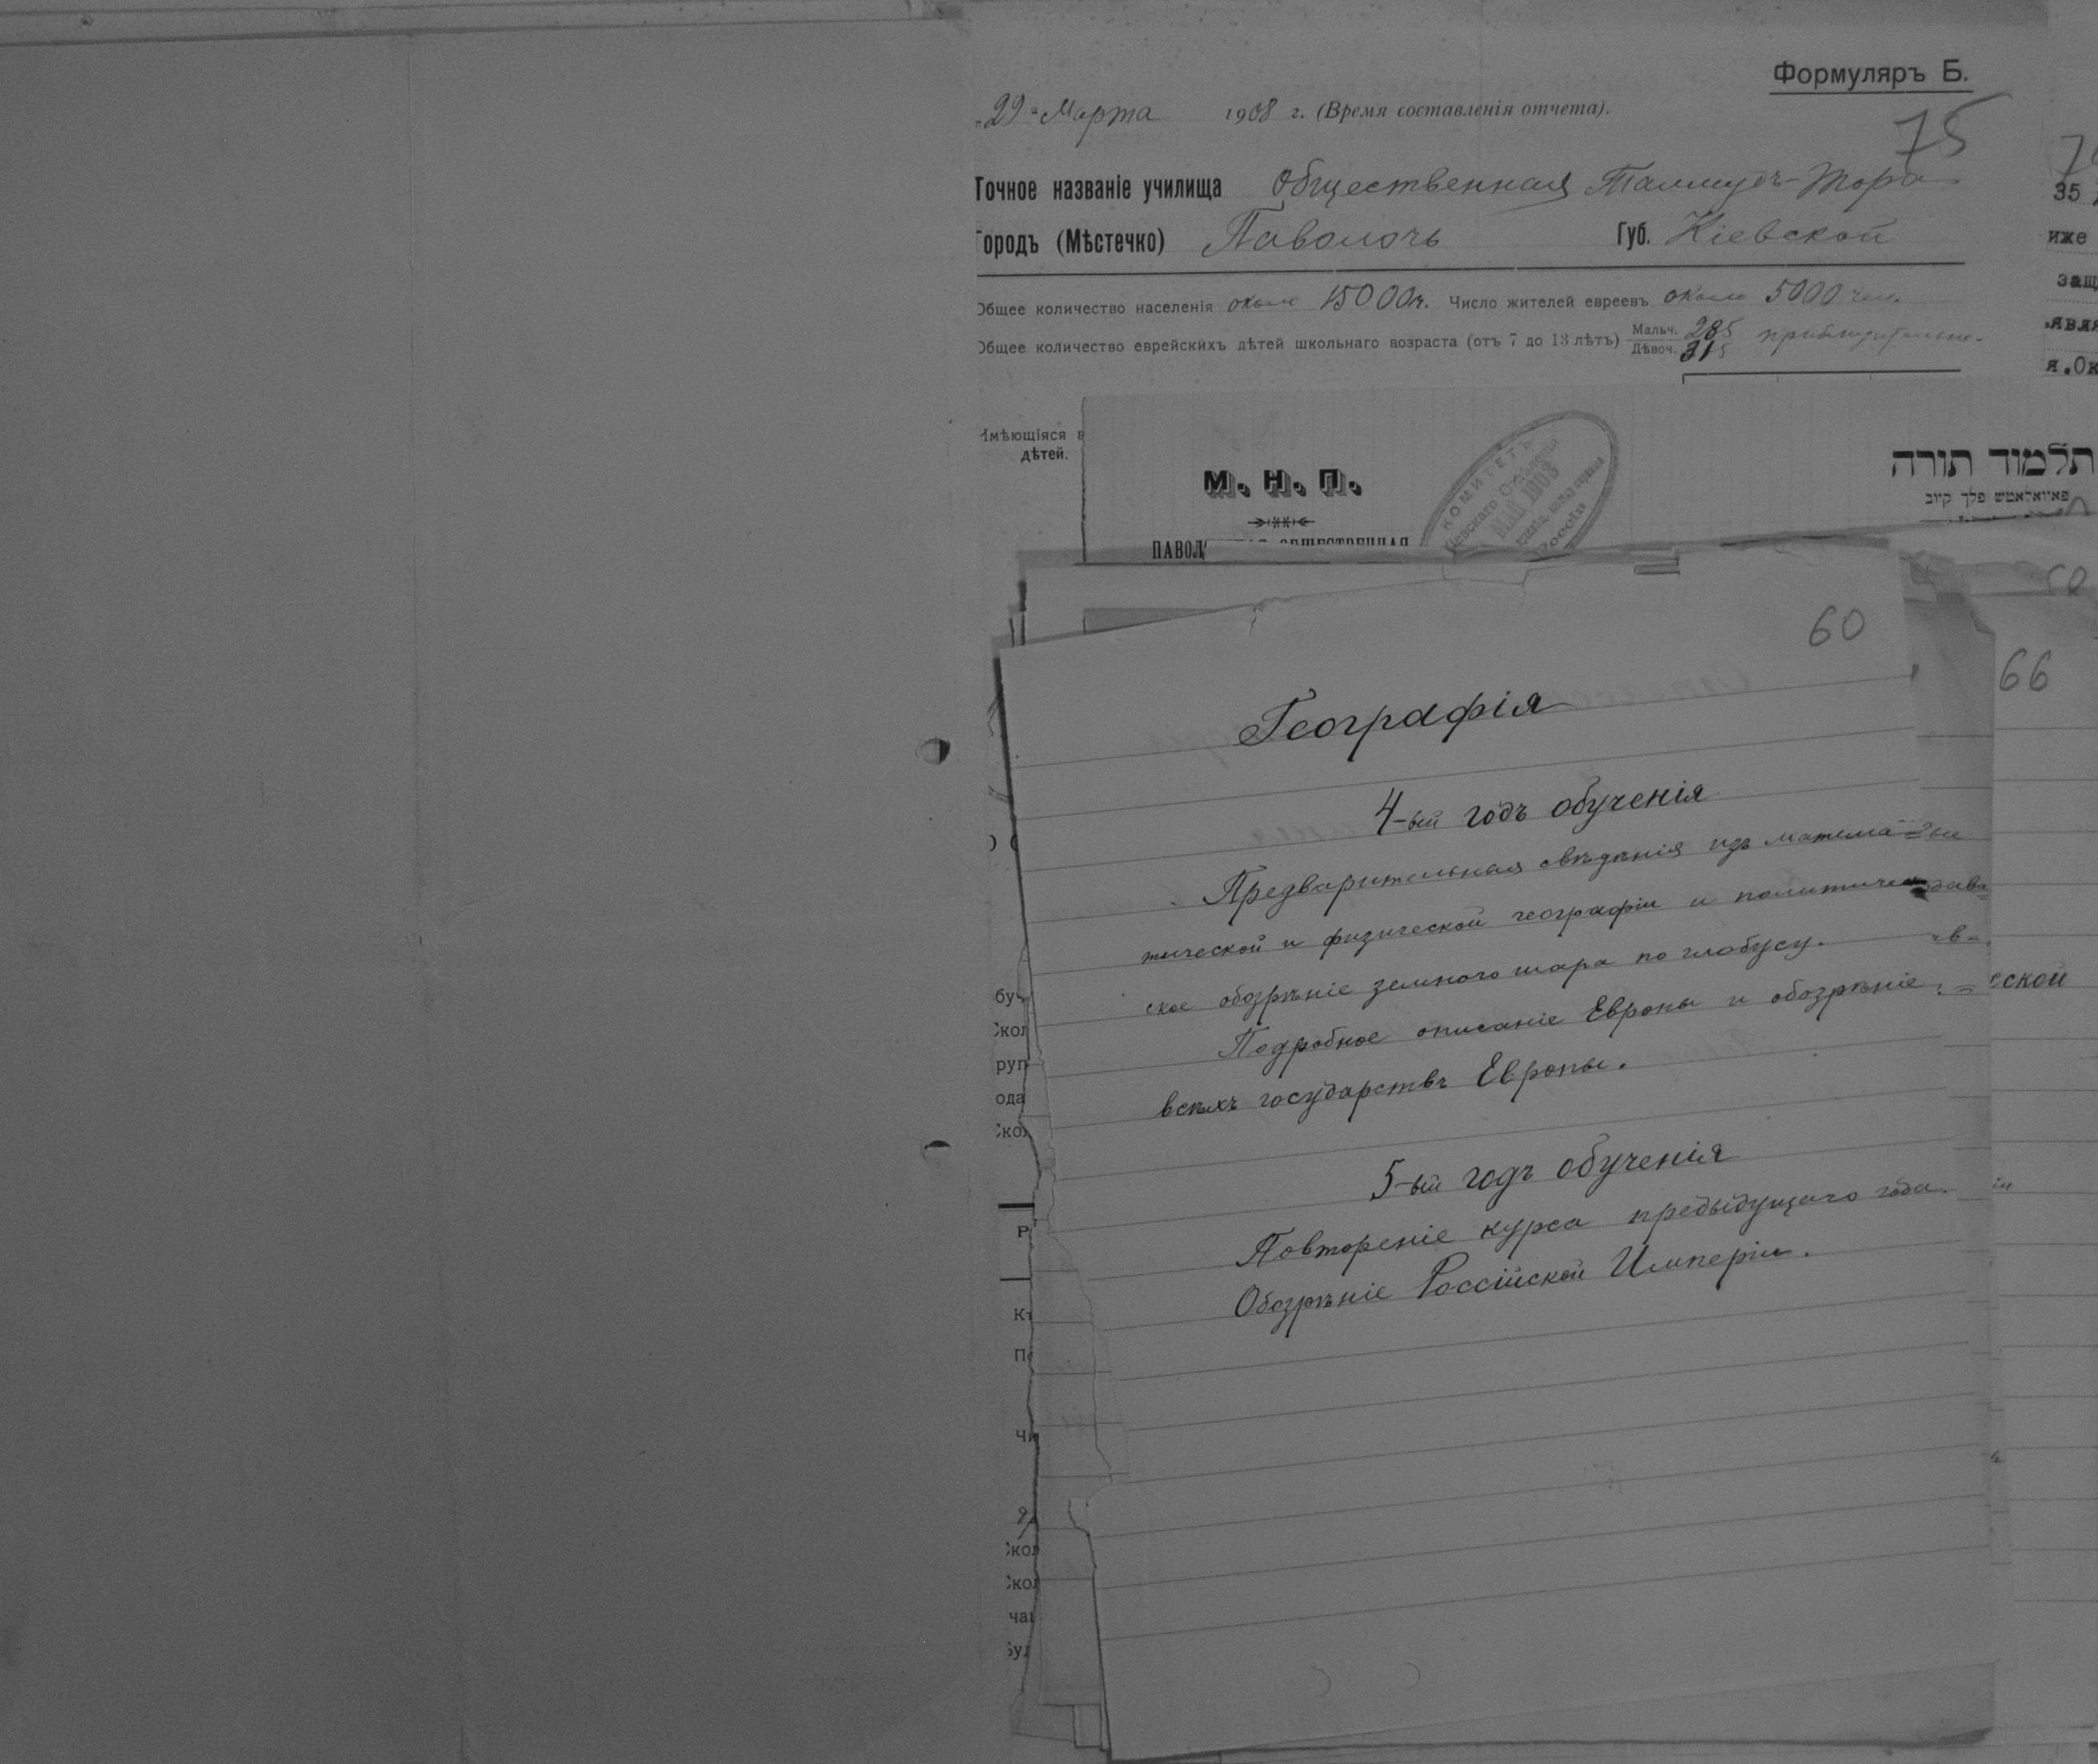 Формуляръ Б.
„29“ Марта 1908 г. (Время составленія отчета).
75
Точное названіе училища Общественная Талмудъ-Тора
Городъ (Мѣстечко) Паволочь Губ. Кіевской
Общее количество населенія около 15000 ч. Число жителей евреевъ около 5000 чел.
Общее количество еврейскихъ дѣтей школьнаго возраста (отъ 7 до 13 лѣтъ) Мальч. 285
Дѣвоч. 315 приблизительно.
35
иже
защ
.явля
я.Ок
Имѣющіяся в
дѣтей.
М. Н. П.
КОМИТЕТЪ
1908
Россіи
תלמוד תורה
פאוואלאטש פלך קיוב
ПАВОЛ ОБЩЕСТВЕННАЯ
60
66
Географія
4-ый годъ обученія
Предварительная свѣдѣнія изъ матема
тической и физической географіи и политиче
ское обозрѣніе земного шара по глобусу.
Подробное описаніе Европы и обозрѣніе
еской
всѣхъ государствъ Европы.
5-ый годъ обученія
Повтореніе курса предыдущаго года.
Обозрѣніе Россійской Имперіи.